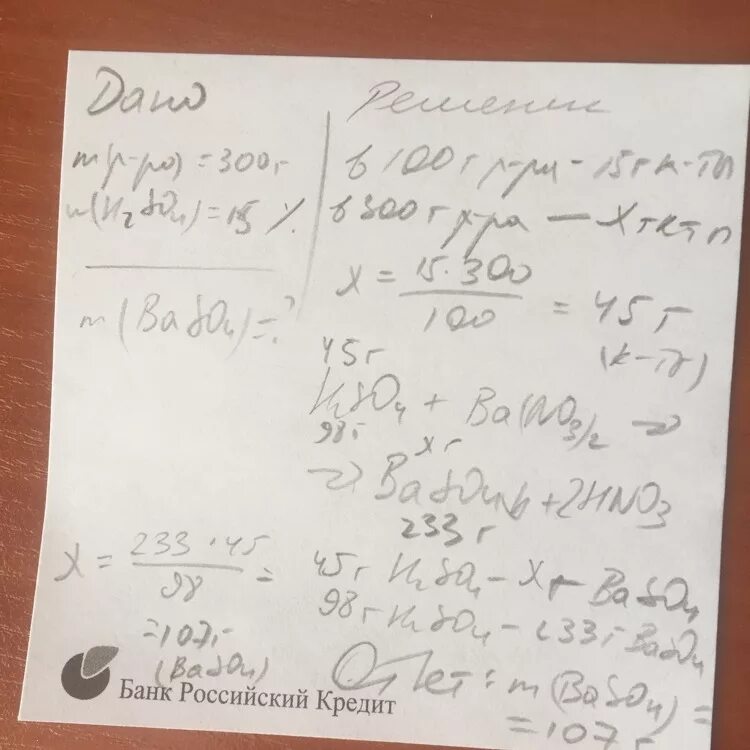 Дано
m(р-ра) = 300г
w(H2SO4) = 15 %
m(BaSO4) = ?
Решение
в 100г р-ра - 15г к-ты
в 300г р-ра - Xг к-ты
X = 15·300 / 100 = 45 г
(к-ты)
45г
H2SO4 + Ba(NO3)2 →
98г
xг
→ BaSO4↓ + 2HNO3
233 г
45г H2SO4 - Xг BaSO4
98г H2SO4 - 233г BaSO4
X = 233·45 / 98 =
= 107г
(BaSO4)
Ответ: m(BaSO4) =
= 107 г
Банк Российский Кредит